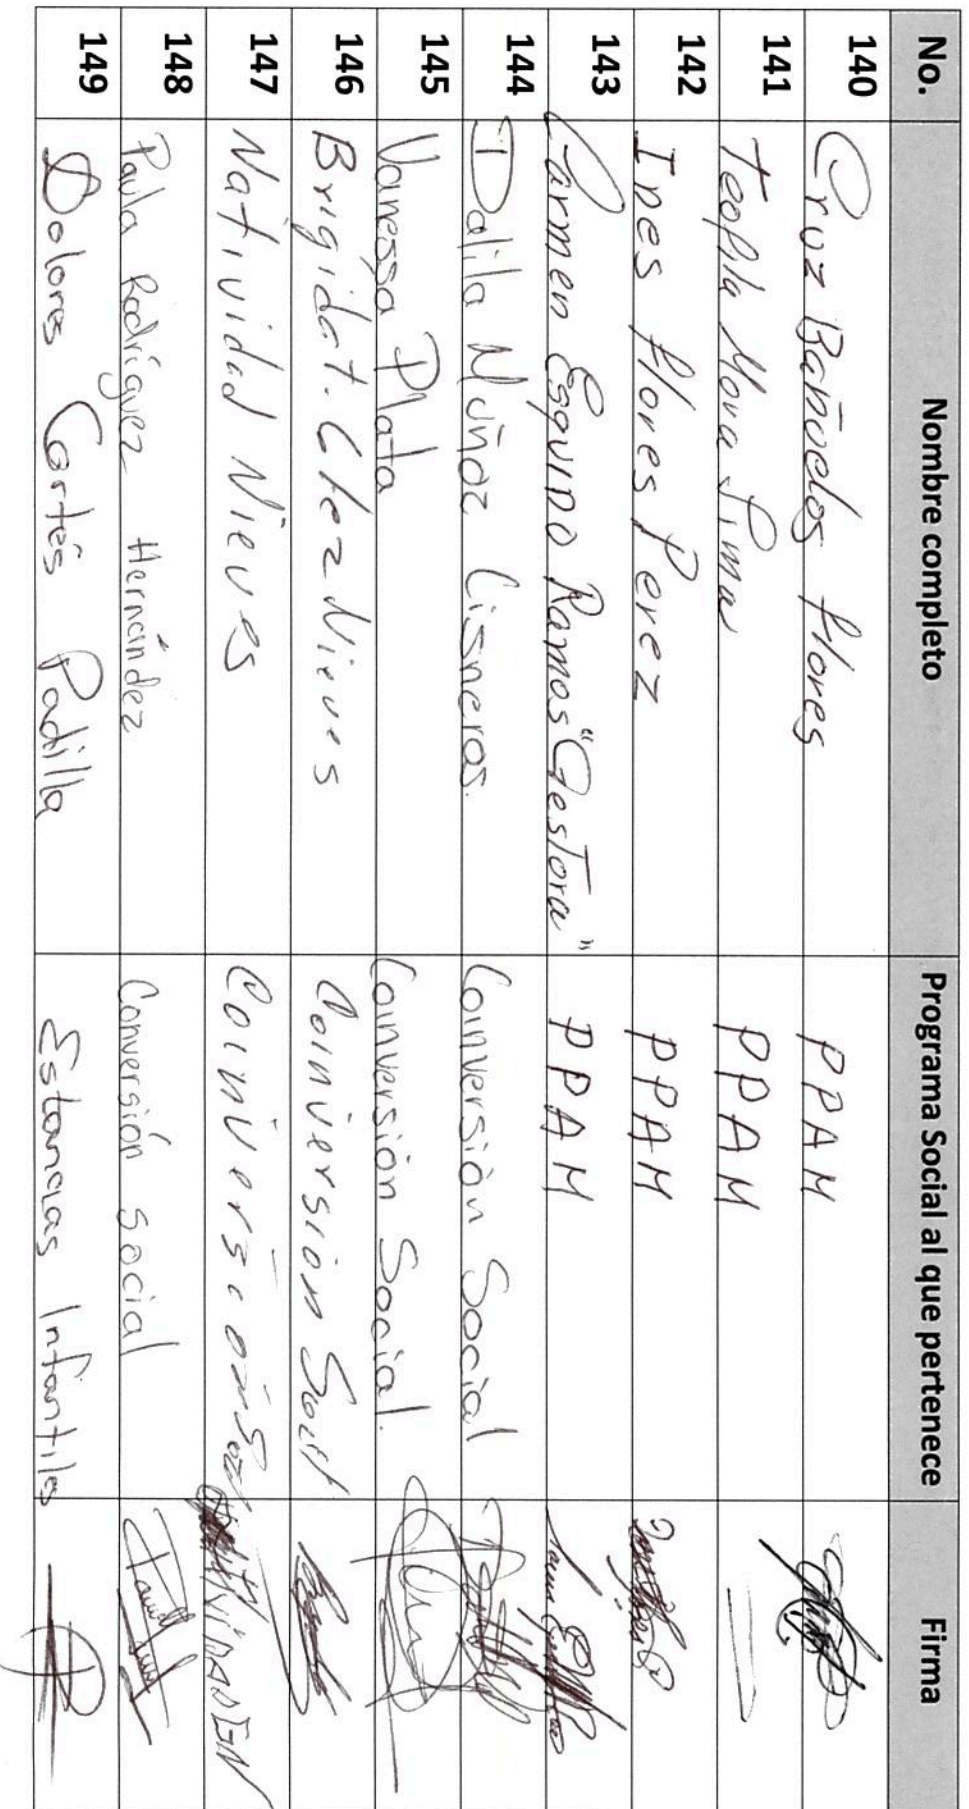 No. Nombre completo Programa Social al que pertenece Firma
140 Cruz Bañuelos Flores PPAM
141 Teofila Mora Lima PPAM
142 Ines Flores Perez PPAM
143 Carmen Esquivo Ramos "Gestora" PPAM
144 Dalila Muñoz Cisneros. Coinversión Social
145 Vanessa Plata Coinversión Social.
146 Brigida t. Glez Nieves Coinversión Socil
147 Natividad Nieves Coinversión
148 Paula Rodríguez Hernández Conversión social
149 Dolores Cortés Padilla Estancias Infantiles